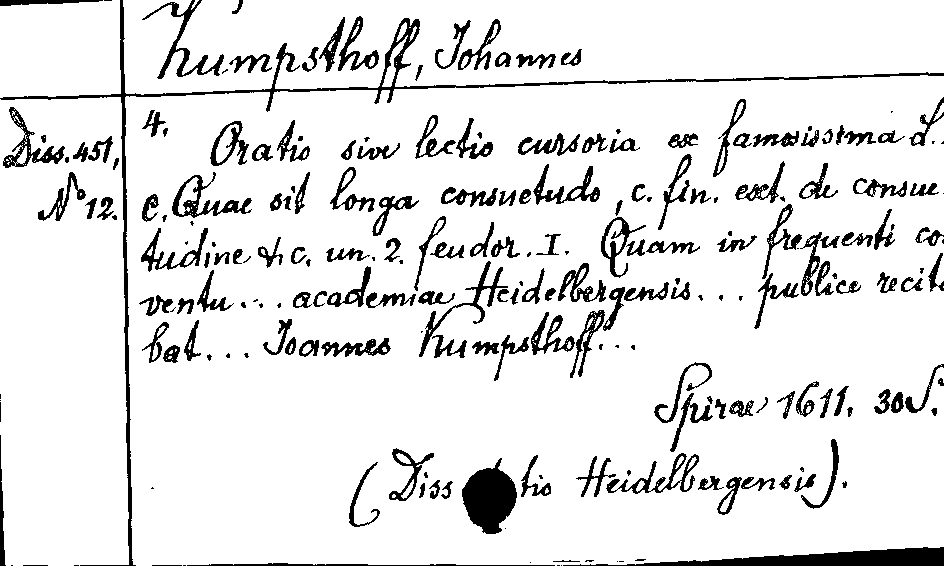 Kumpsthoff, Johannes
Diss. 451,
No 12.
4.
Oratio sive lectio cursoria ex famosissima L.
C. Quae sit longa consuetudo, c. fin. ext. de consue
tudine & c. un. 2. feudor. I. Quam in frequenti con
ventu... academiae Heidelbergensis... publice recita
bat... Joannes Kumpsthoff...
Spirae 1611. 30 S.
(Diss tio Heidelbergensis).